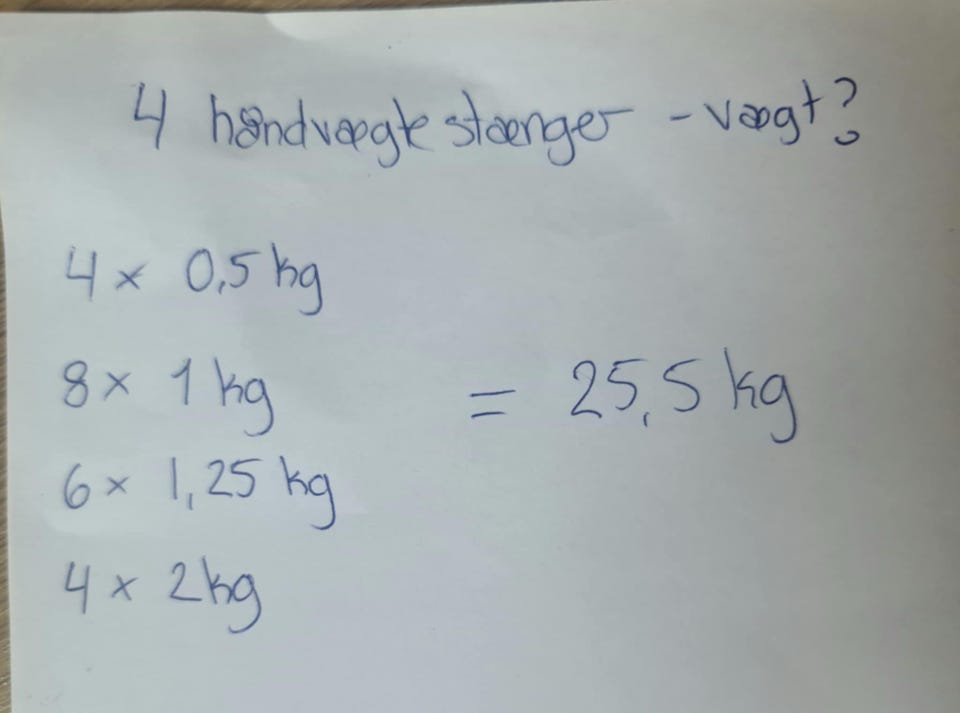 4 håndvægte stænger - vægt?
4 x 0,5 kg
8 x 1 kg = 25,5 kg
6 x 1,25 kg
4 x 2 kg